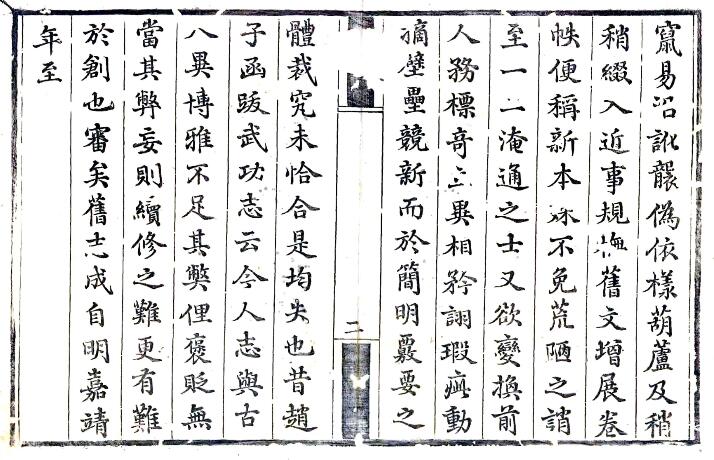 竄易沿訛襲偽依樣葫蘆及稍
稍綴入近事規橅舊文增展卷
帙便稱新本殊不免荒陋之誚
至一二淹通之士又欲變換前
人務標奇立異相矜詡瑕疵動
摘壁壘競新而於簡明覈要之
二
體裁究未恰合是均失也昔趙
子函跋武功志云今人志與古
八異博雅不足其獘俚褒貶無
當其弊妄則續修之難更有難
於創也審矣舊志成自明嘉靖
年至